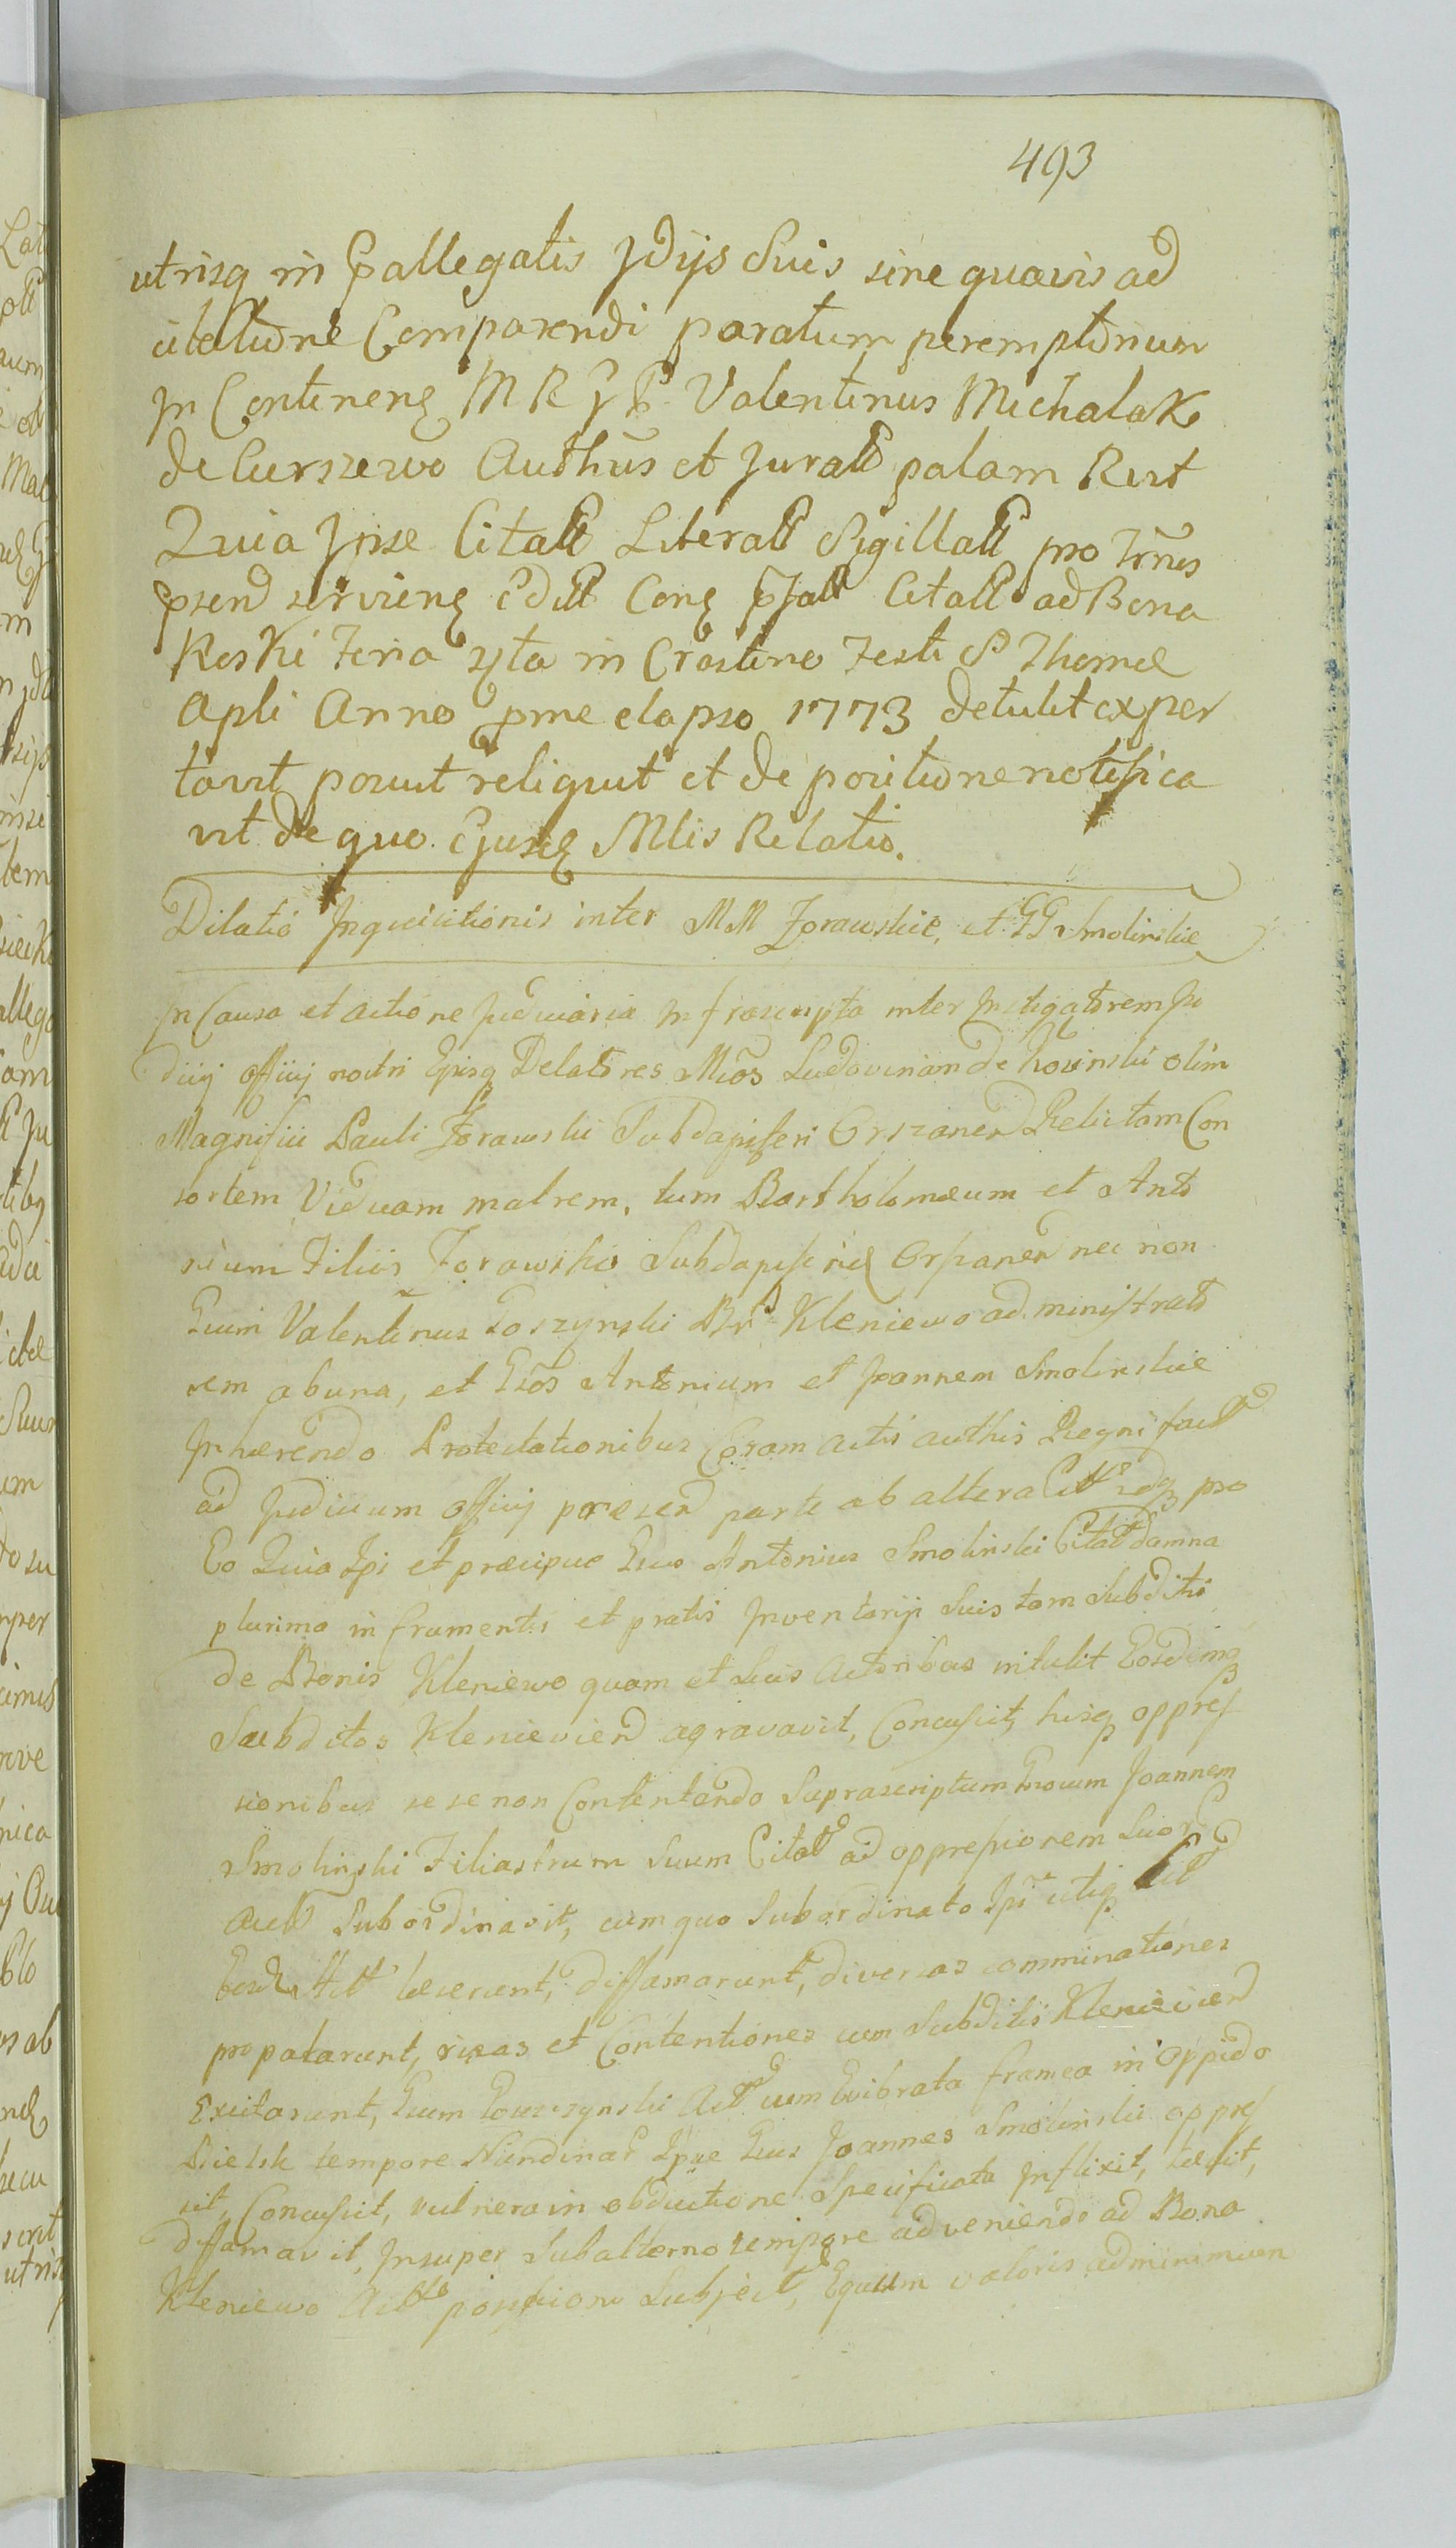 493
utrisq in Pallegatis Jdijs Suis sine quavis ad
citatione Comparendi paratum peremptorium
Jn Continenq M R J P Valentinus Michalak
de Curszewo Authus et Juratt palam Rvit
Quia Jpse Citatt Literatt Sigillatt pro Trms
psend servienq Edidit Conq Citatt ad Bona
Koski Feria 4ta in Crastino Festi S Thomæ
Apli Anno pme elapso 1773 detulit exper
tavit posuit reliquit et de positione notifica
vit de quo Ejusq Mlis Relatio.
Dilatio Jnquisitionis inter MM Zorawskie, et GG Smolinskie
Jn Causa et actione Judiciaria Jnfrascripta inter Jnstigatorem Ju
dicij officij nostri Ejusq Delatores Mcos Ludovinam de olim
Magnifici Pauli Zorawski Subdapiferi Orszanen Relictam Con
sortem Viduam matrem, tum Bartholomæum et Anto
nium Filios Zorawskie Orszanen nec non
Gsum Valentinus Bni Kleniewo administrato
rem ab una, et Gsos Antonium et Joannem Smolinskie
Jnhærendo Protestationibus Coram actis authis Regni factt
ad Judicium officij præsen parte ab altera pro
Eo Quia Jpi et præcipue Gsus Antonius Smolinski Citatt Damna
plurima in frumentis et pratis Jnventarij Suis tam Subditis
de Bonis Kleniewo quam et Suis Actoribus intulit Eosdemq
Subditos Klenievien agravavit, Concussit, hisq oppres
sionibus sese non Contentando Suprascriptum Gsum Joannem
Smolinski Filiastrum Suum Citatt ad oppressionem Suor
Actt Subordinavit, cum quo Subordinato Jpi utiq
Actt læserunt, diffamarunt, diversas comminationes
propalarunt, rixas et Contentiones cum Subditis Klenievien
Excitarunt, Gsum Actt cum Evibrata framea in Oppido
Bielsk tempore Nundinar Jpse Gsus Joannes Smolinski oppres
sit, Concussit, vulnera in obductione Specificata Jnflixit, læsit,
diffamavit, Jnsuper Subalterno tempore adveniendo ad Bona
Kleniewo possessioni Subject, Equum valoris ad minimum